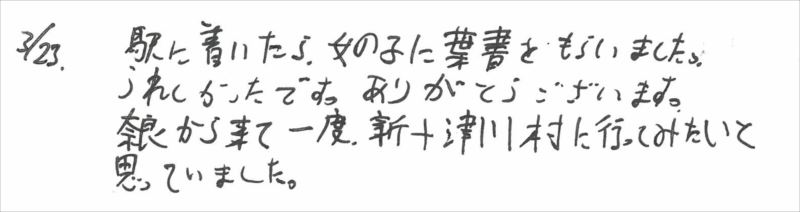 3/23. 駅に着いたら、女の子に葉書をもらいました。
うれしかったです。ありがとうございます。
奈良から来て一度、新十津川村に行ってみたいと
思っていました。